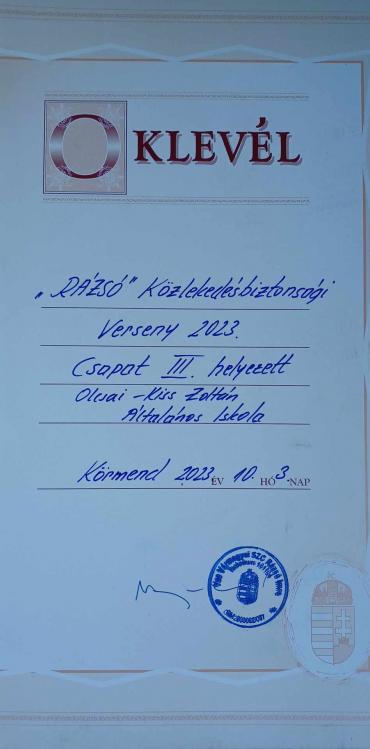 OKLEVÉL
„RÁZSÓ" Közlekedésbiztonsági
Verseny 2023.
Csapat III. helyezett
Olcsai-Kiss Zoltán
Általános Iskola
Körmend 2023 ÉV 10. HÓ 3. NAP
Vas Vármegyei SZC Rázsó Imre